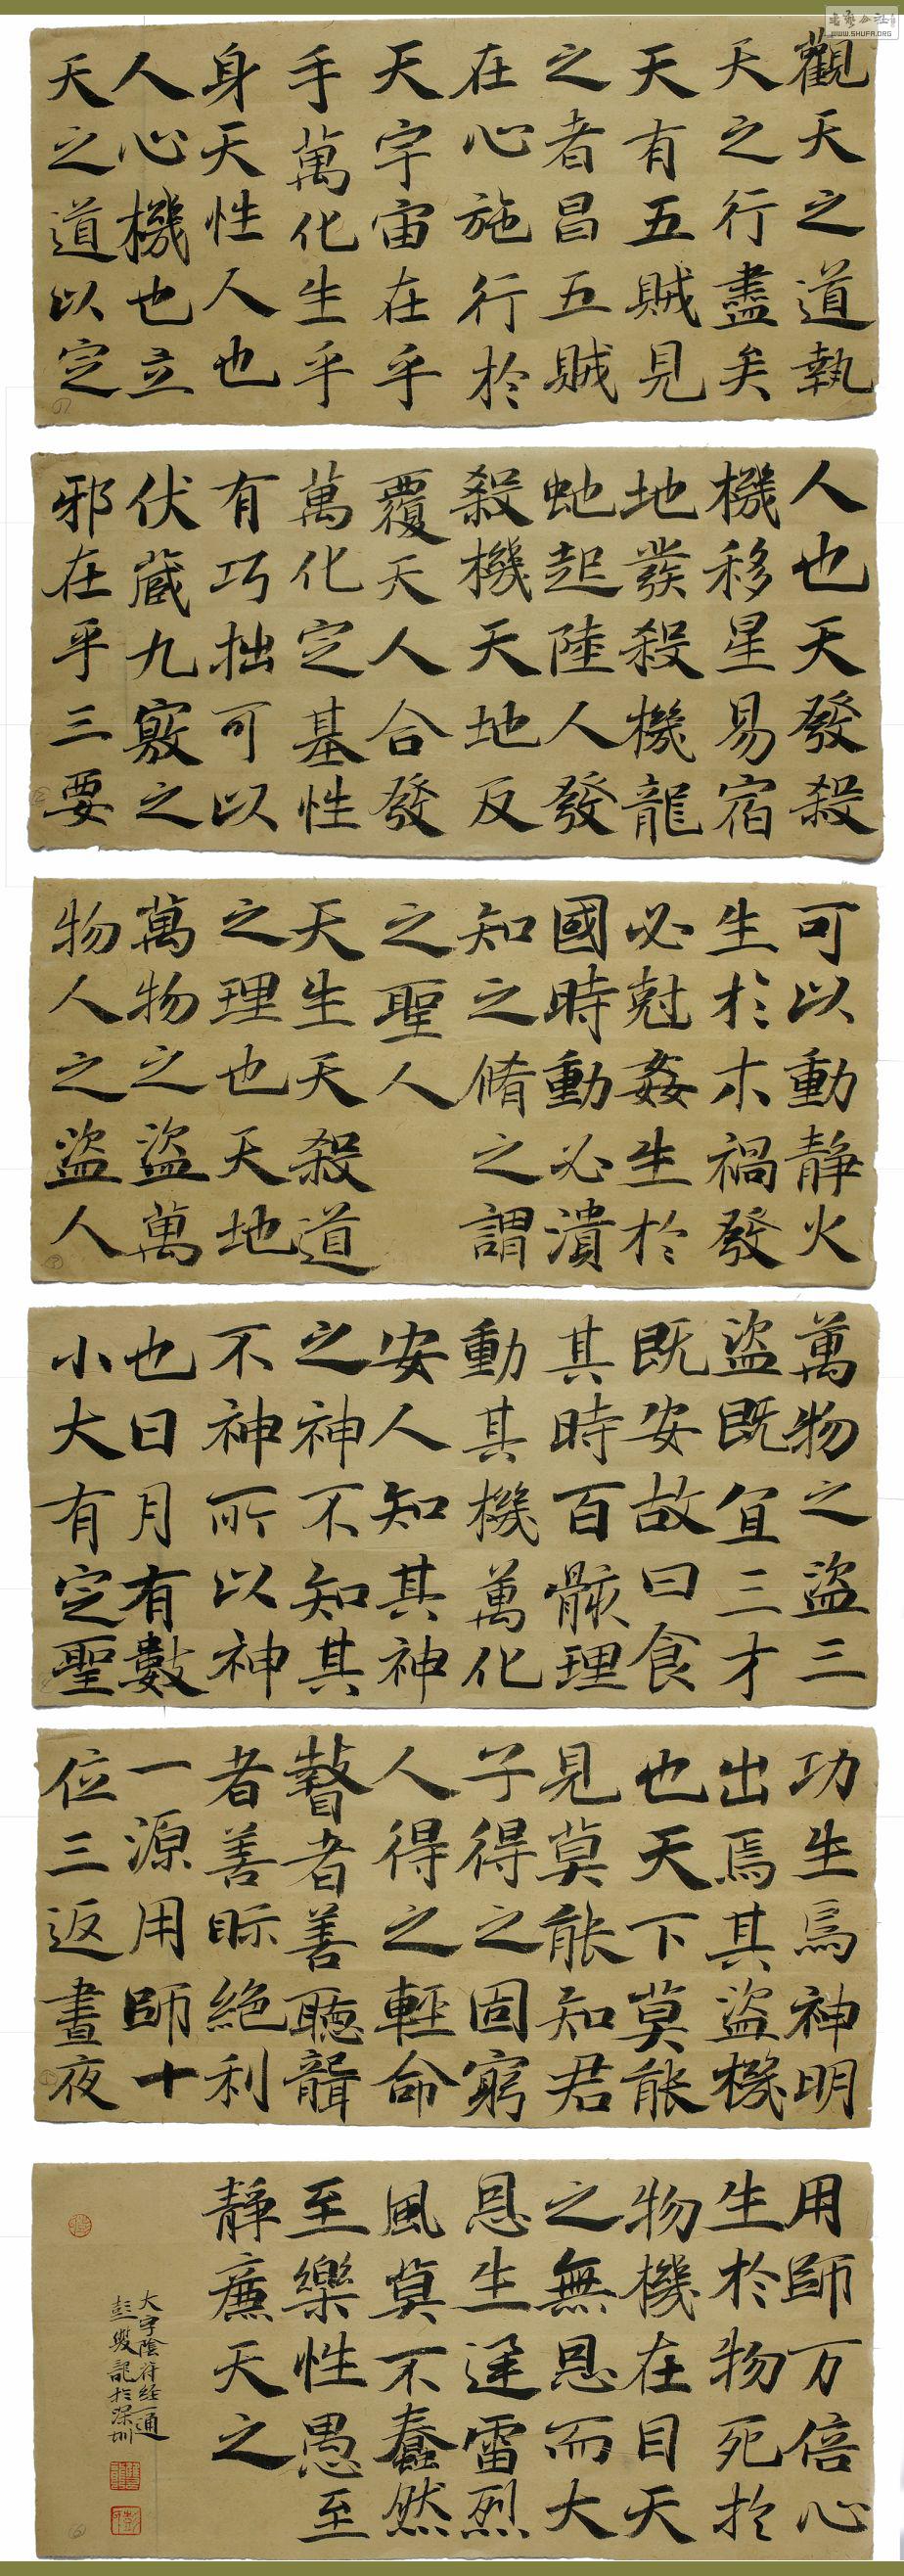 觀天之道執
天之行盡矣
天有五賊見
之者昌五賊
在心施行於
天宇宙在乎
手萬化生乎
身天性人也
人心機也立
天之道以定
人也天發殺
機移星易宿
地發殺機龍
虵起陸人發
殺機天地反
覆天人合發
萬化定基性
有巧拙可以
伏藏九竅之
邪在乎三要
可以動靜火
生於木禍發
必尅姦生於
國時動必潰
知之脩之謂
之聖人
天生天殺道
之理也天地
萬物之盜萬
物人之盜人
萬物之盜三
盜既宜三才
既安故曰食
其時百骸理
動其機萬化
安人知其神
之神不知其
不神所以神
也日月有數
小大有定聖
功生焉神明
出焉其盜機
也天下莫能
見莫能知君
子得之固窮
人得之輕命
瞽者善聽聾
者善眎絕利
一源用師十
位三返晝夜
用師万倍心
生於物死於
物機在目天
之無恩而大
恩生迅雷烈
風莫不蠢然
至樂性愚至
靜廉天之
大字陰符經一通
彭雙記於深圳
WWW.SHUFA.ORG